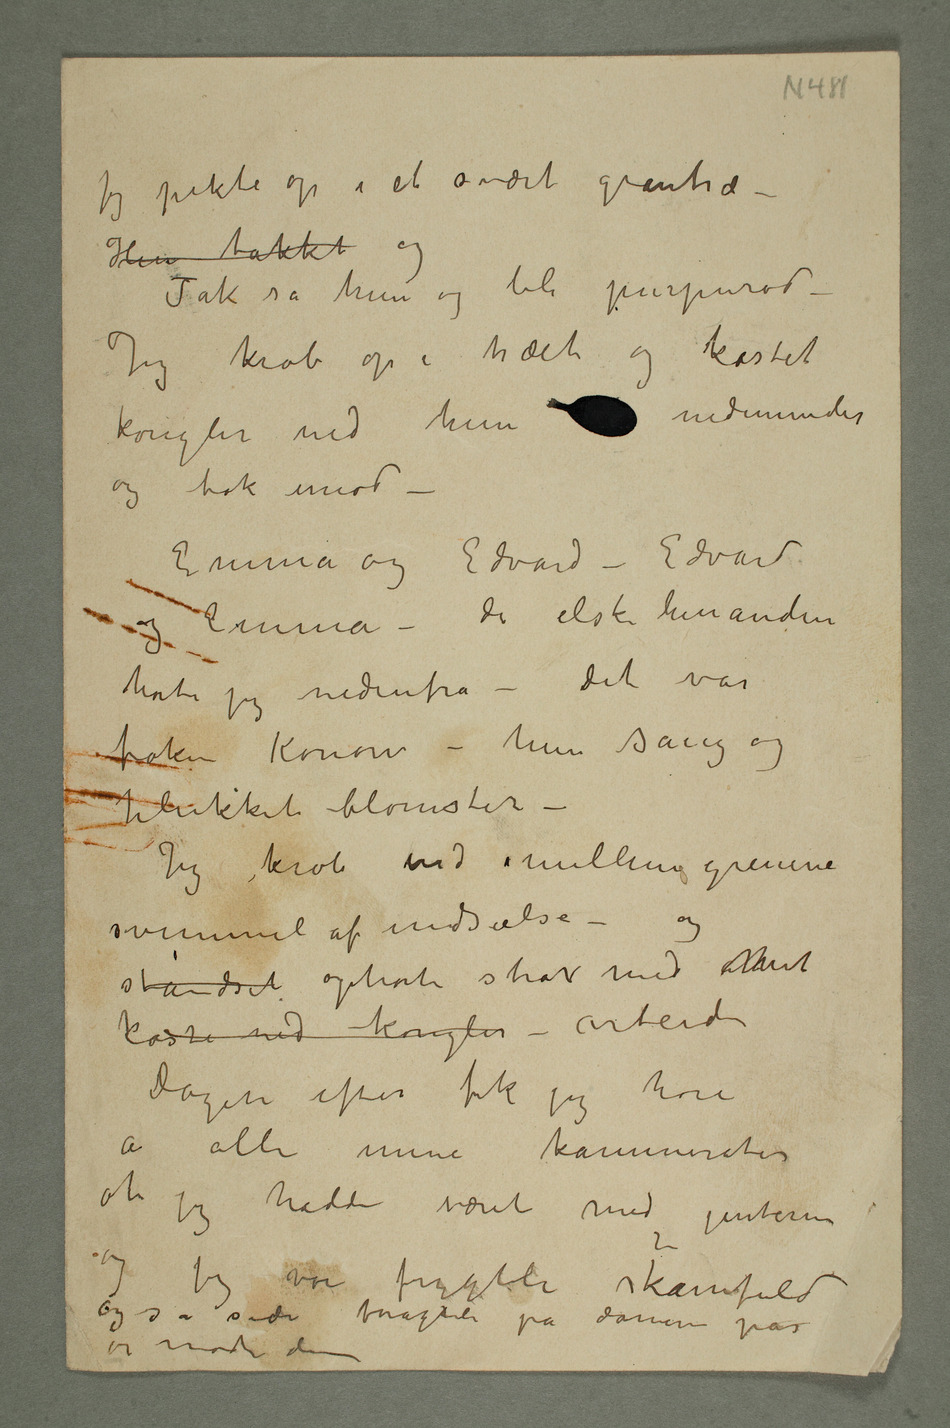 N 481
Jeg pekte op i et svært grantræ –
Hun takket og
Tak sa hun og ble purpurød –
Jeg krøb op i træet og kastet
kongler ned hun nedenunder
og tok imod –
Emma og Edvard – Edvard
og Emma – de elske hinanden
hørte jeg nedenfra – det var
frøken Konow – hun sang og
plukket blomster –
Jeg krøb ned imellem grenene
svimmel af undseelse – og
standset ophørte strax med
kaste ned kongler – arbeide
Dagen efter fik jeg høre
a alle mine kammerater
at jeg hadde været med jenterne
og jeg var frygtelig skamfuld
og så side foragtelig på damerne
møtte dem